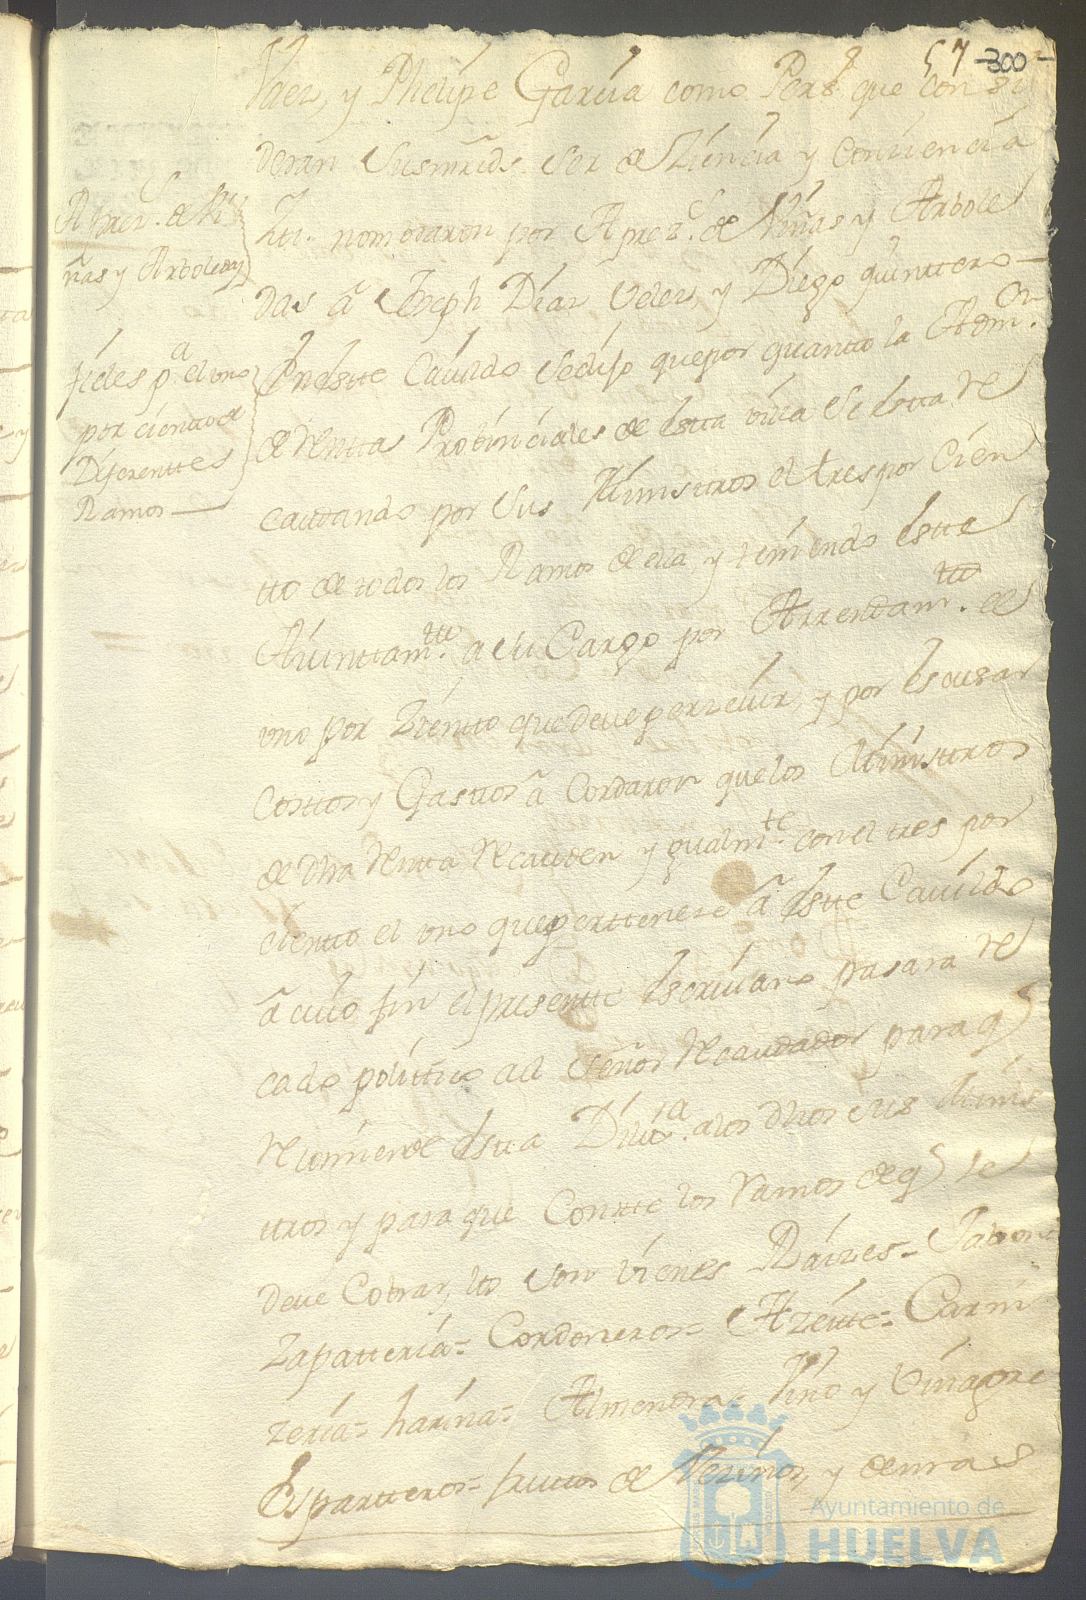 57 -300-
Vaez, y Phelipe Garcia como Pers.s que consi
deran Susmrds. Ser de Ziencia y Conziencia
nombraron por Aprez.s de Viñas y Arbole
das â Joseph Diaz Velez, y Diego quinttero
Aprez.s de Vi
ñas y Arboledas
En este Cavildo Sedijo quepor quanto la Adm.on
de Renttas Probinciales de estta villa Se estta re
caudando por sus Ministros el tres por Cien
tto de todos los Ramos de ella, y teniendo estte
Aiunttam.tto a su Cargo por Arrendam.tto el
uno por Ziento que deve perzevir, y por escusar
Costtos y Gasttos â Cordaron que los Ministtros
de dha Rentta Recauden ygualm.te con el tres por
ciento el uno que perttenese â estte Cavildo
â cuio fin el presentte escrivano pasara re
cado polittico al Señor Recaudador para q
recomiende estta Dilix.a alos dhos sus Minis
ttros y para que Conste los ramos de q se
deve Cobrar, los son vienes Raizes= Jabon=
Zapatteria= Cordoneros= Azeitte= Carni
zeria= harina= Almendra= Vino y Vinagre
Espartteros= fruttos de Vezinos, y demas
fieles p.a el uno
por ciento de
Diferenttes
Ramos
Ayuntamiento de
HUELVA